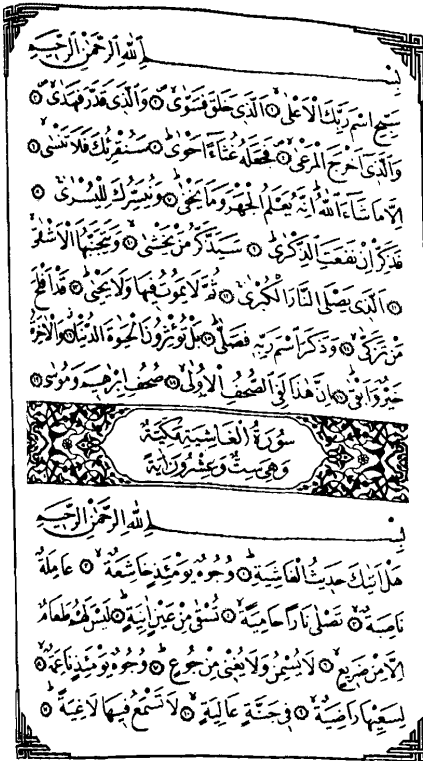 بِسْمِ اللّٰهِ الرَّحْمٰنِ الرَّحِيمِ
سَبِّحِ اسْمَ رَبِّكَ الْاَعْلٰىۙ ﴿١﴾ اَلَّذٖى خَلَقَ فَسَوّٰىۙ ﴿٢﴾ وَالَّذٖى قَدَّرَ فَهَدٰىۙ ﴿٣﴾
وَالَّذٖٓى اَخْرَجَ الْمَرْعٰىۙ ﴿٤﴾ فَجَعَلَهُ غُثَٓاءً اَحْوٰىۜ ﴿٥﴾ سَنُقْرِئُكَ فَلَا تَنْسٰىۙ ﴿٦﴾
اِلَّا مَا شَٓاءَ اللّٰهُۜ اِنَّهُ يَعْلَمُ الْجَهْرَ وَمَا يَخْفٰىۜ ﴿٧﴾ وَنُيَسِّرُكَ لِلْيُسْرٰىۚ ﴿٨﴾
فَذَكِّرْ اِنْ نَفَعَتِ الذِّكْرٰىۜ ﴿٩﴾ سَيَذَّكَّرُ مَنْ يَخْشٰىۙ ﴿١٠﴾ وَيَتَجَنَّبُهَا الْاَشْقٰىۙ
﴿١١﴾ اَلَّذٖى يَصْلَى النَّارَ الْكُبْرٰىۚ ﴿١٢﴾ ثُمَّ لَا يَمُوتُ فٖيهَا وَلَا يَحْيٰىۜ ﴿١٣﴾ قَدْ اَفْلَحَ
مَنْ تَزَكّٰىۙ ﴿١٤﴾ وَذَكَرَ اسْمَ رَبِّهٖ فَصَلّٰىۜ ﴿١٥﴾ بَلْ تُؤْثِرُونَ الْحَيٰوةَ الدُّنْيَاۘ ﴿١٦﴾ وَالْاٰخِرَةُ
خَيْرٌ وَاَبْقٰىۜ ﴿١٧﴾ اِنَّ هٰذَا لَفِى الصُّحُفِ الْاُولٰىۙ ﴿١٨﴾ صُحُفِ اِبْرٰهٖيمَ وَمُوسٰى ﴿١٩﴾
سُورَةُ الْغَاشِيَةِ مَكِّيَّةٌ
وَهِيَ سِتٌّ وَعِشْرُونَ اٰيَةً
بِسْمِ اللّٰهِ الرَّحْمٰنِ الرَّحِيمِ
هَلْ اَتٰيكَ حَدٖيثُ الْغَاشِيَةِۜ ﴿١﴾ وُجُوهٌ يَوْمَئِذٍ خَاشِعَةٌۙ ﴿٢﴾ عَامِلَةٌ
نَاصِبَةٌۙ ﴿٣﴾ تَصْلٰى نَارًا حَامِيَةًۙ ﴿٤﴾ تُسْقٰى مِنْ عَيْنٍ اٰنِيَةٍۜ ﴿٥﴾ لَيْسَ لَهُمْ طَعَامٌ
اِلَّا مِنْ ضَرٖيعٍۙ ﴿٦﴾ لَا يُسْمِنُ وَلَا يُغْنٖى مِنْ جُوعٍۜ ﴿٧﴾ وُجُوهٌ يَوْمَئِذٍ نَاعِمَةٌۙ ﴿٨﴾
لِسَعْيِهَا رَاضِيَةٌۙ ﴿٩﴾ فٖى جَنَّةٍ عَالِيَةٍۙ ﴿١٠﴾ لَا تَسْمَعُ فٖيهَا لَاغِيَةًۜ ﴿١١﴾